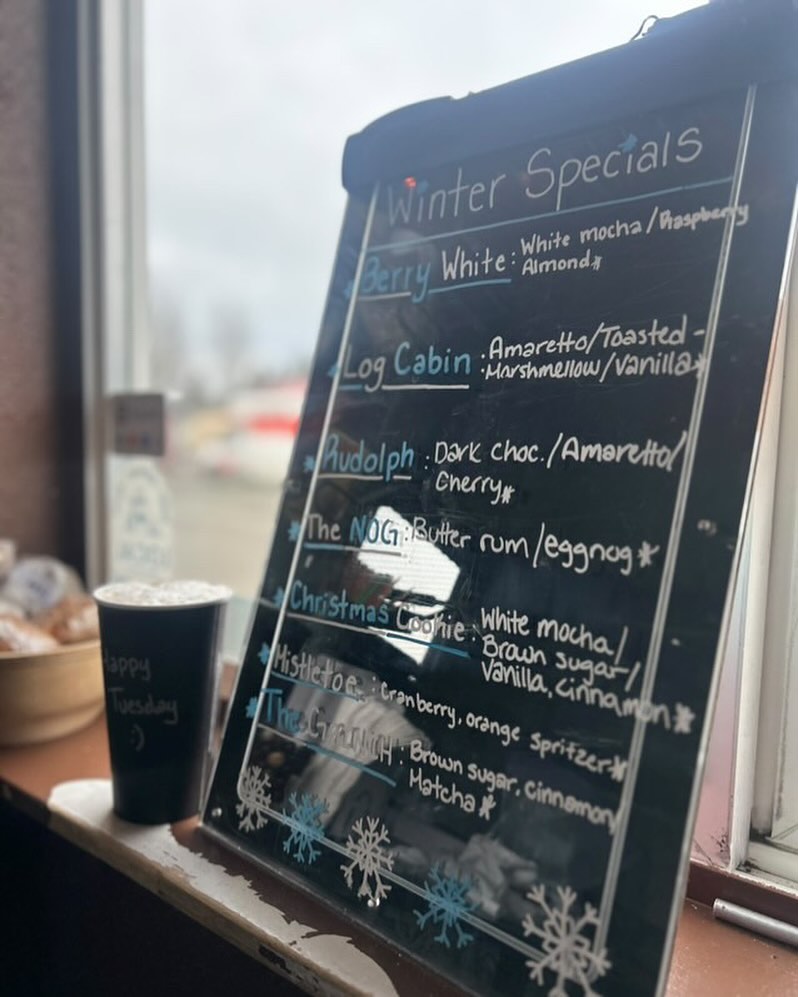 Winter Specials
Berry White: White mocha/Raspberry
Almond*
Log Cabin: Amaretto/Toasted-
Marshmellow/Vanilla*
Rudolph: Dark choc./Amaretto/
Cherry*
The NOG: Butter rum/eggnog*
Christmas Cookie: White mocha/
Brown sugar/
Vanilla, cinnamon*
Mistletoe: Cranberry, orange spritzer*
The Grinch: Brown sugar, cinnamon,
Matcha*
Happy
Tuesday
:)